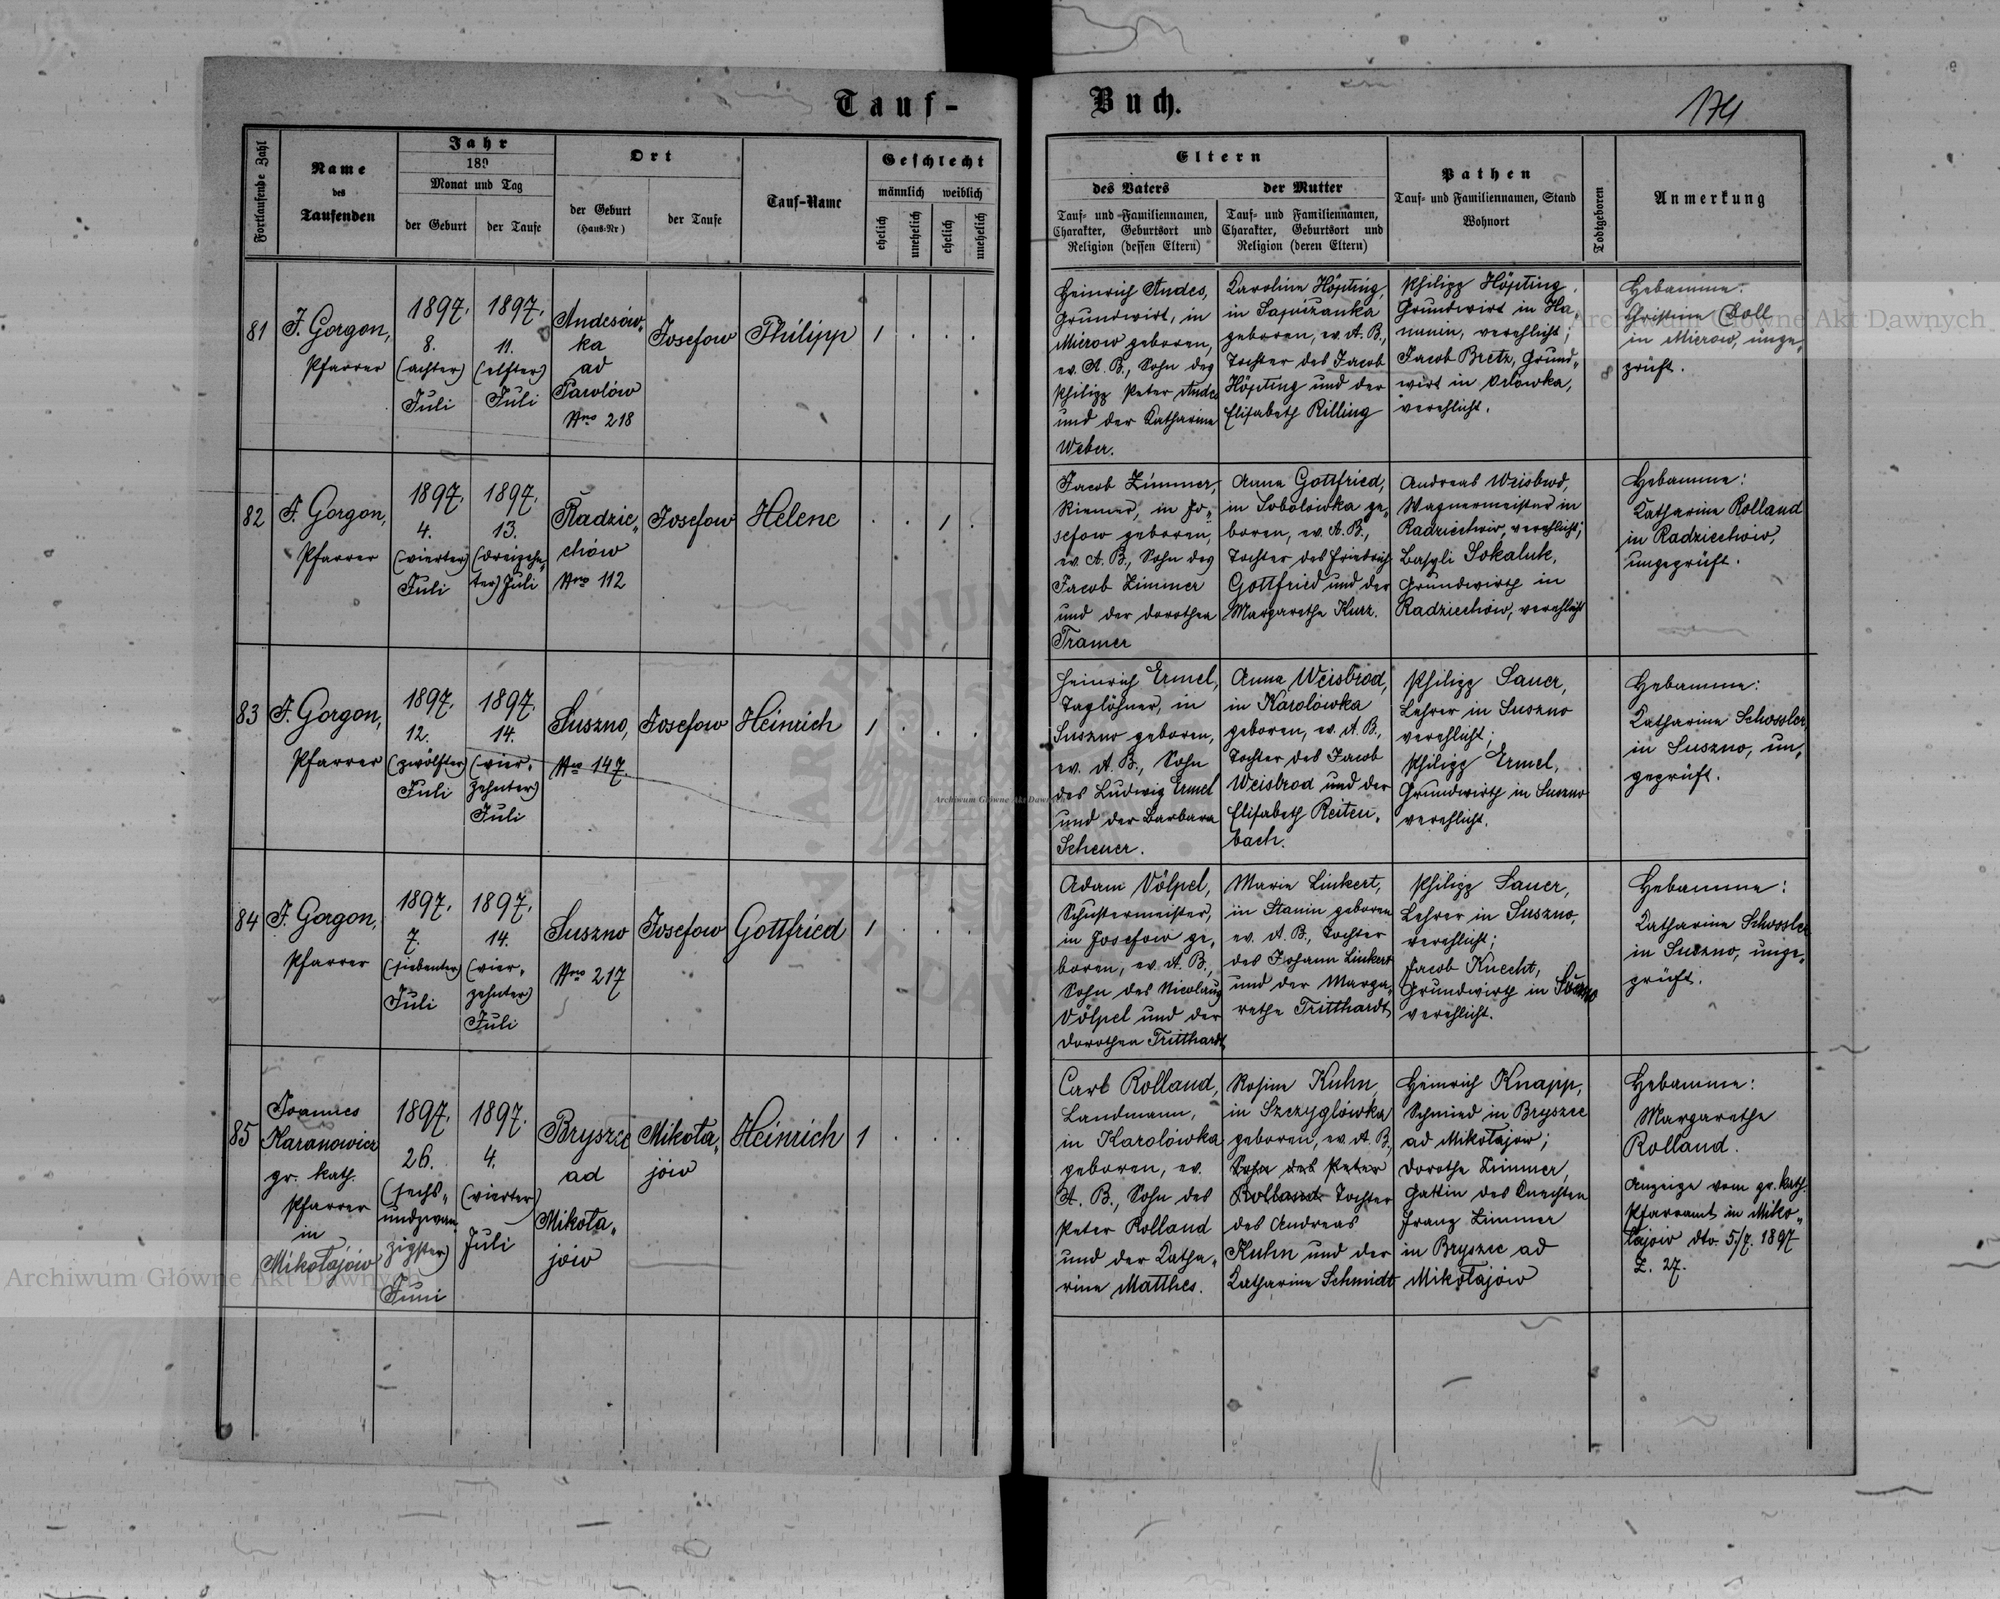 Tauf-
Buch.
174
Fortlaufende Zahl
Name
des
Taufenden
Jahr
189
Monat und Tag
der Geburt
der Taufe
Ort
der Geburt
(Haus-Nr)
der Taufe
Tauf-Name
Geschlecht
männlich weiblich
ehelich
unehelich
ehelich
unehelich
Eltern
des Vaters
Tauf- und Familiennamen,
Charakter, Geburtsort und
Religion (dessen Eltern)
der Mutter
Tauf- und Familiennamen,
Charakter, Geburtsort und
Religion (deren Eltern)
Pathen
Tauf- und Familiennamen, Stand
Wohnort
Todtgeboren
Anmerkung
81
F. Gorgon,
Pfarrer
1897.
8.
(achter)
Juli
1897.
11.
(elfter)
Juli
Andesów-
ka
ad
Pawlów
Nro 218
Josefow
Philipp
1 . . .
Heinrich Andes,
Grundwirt, in
Mierow geboren,
ev. A. B., Sohn des
Philipp Peter Andes
und der Katharina
Weber.
Karoline Höpting,
in Sapiezanka
geboren, ev. A. B.,
Tochter des Jacob
Höpting und der
Elisabeth Rilling
Philipp Höpting
Grundwirt in Ha-
nunin, verehlicht;
Jacob Bretz, Grund-
wirt in Orlowka,
verehlicht.
Hebamme:
Christine Doll
in Mierow, unge-
prüft.
82
F. Gorgon,
Pfarrer
1897.
4.
(vierter)
Juli
1897.
13.
(dreizehn-
ter) Juli
Radzie-
chów
Nro 112
Josefow
Helene
. . 1 .
Jacob Zimmer,
Riemer, in Jo-
sefow geboren,
ev. A. B., Sohn des
Jacob Zimmer
und der Dorothea
Tramer
Anna Gottfried,
in Sobolówka ge-
boren, ev. A. B.,
Tochter des Friedrich
Gottfried und der
Margarethe Kurz.
Andreas Weisbrod,
Wagnermeister in
Radziechów, verehlicht;
Basyli Sokaluk,
Grundwirth in
Radziechów, verehlicht
Hebamme:
Katharina Rolland
in Radziechów,
ungeprüft.
83
F. Gorgon,
Pfarrer
1897.
12.
(zwölfter)
Juli
1897.
14.
(vier-
zehnter)
Juli
Suszno,
Nro 147.
Josefow
Heinrich
1 . . .
Heinrich Ermel,
Taglöhner, in
Suszno geboren,
ev. A. B., Sohn
des Ludwig Ermel
und der Barbara
Scheuer.
Anna Weisbrod,
in Karolówka
geboren, ev. A. B.,
Tochter des Jacob
Weisbrod und der
Elisabeth Reiten-
bach.
Philipp Sauer,
Lehrer in Suszno
verehlicht;
Philipp Ermel,
Grundwirth in Suszno
verehlicht.
Hebamme:
Katharina Schossler,
in Suszno, un-
geprüft.
84
F. Gorgon,
Pfarrer
1897.
7.
(siebenter)
Juli
1897.
14.
(vier-
zehnter)
Juli
Suszno
Nro 217
Josefow
Gottfried
1 . . .
Adam Völpel,
Schustermeister,
in Josefow ge-
boren, ev. A. B.,
Sohn des Nicolaus
Völpel und der
Dorothea Tritthardt
Marie Linkert,
in Stanin geboren
ev. A. B., Tochter
des Johann Linkert
und der Marga-
rethe Tritthardt
Philipp Sauer,
Lehrer in Suszno,
verehlicht;
Jacob Knecht,
Grundwirth in Suszno
verehlicht.
Hebamme:
Katharina Schossler
in Suszno, unge-
prüft.
85
Joannes
Karanowicz
gr. kath.
Pfarrer
in
Mikołajów
1897.
26.
(sechs-
undzwan-
zigster)
Juni
1897.
4.
(vierter)
Juli
Bryszce
ad
Mikoła-
jów
Mikoła-
jów
Heinrich
1 . . .
Carl Rolland,
Landmann,
in Karolówka
geboren, ev.
A. B., Sohn des
Peter Rolland
und der Katha-
rina Matthes.
Rosina Kuhn,
in Szczyglówka
geboren, ev. A. B.,
Sohn des Peter
Rolland Tochter
des Andreas
Kuhn und der
Katharina Schmidt
Heinrich Knapp,
Schmied in Bryszce
ad Mikołajów;
Dorothe Zimmer,
Gattin des Knechten
Franz Zimmer
in Bryszce ad
Mikołajów
Hebamme:
Margarethe
Rolland.
Anzeige vom gr. kath.
Pfarramt in Miko-
łajów dto. 5/7. 1897
Z. 27.
Archiwum Główne Akt Dawnych
Archiwum Główne Akt Dawnych
Archiwum Główne Akt Dawnych